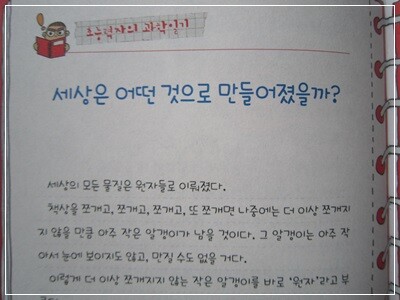 초능력자의 과학일기
세상은 어떤 것으로 만들어졌을까?
세상의 모든 물질은 원자들로 이뤄졌다.
책상을 쪼개고, 쪼개고, 쪼개고, 또 쪼개면 나중에는 더 이상 쪼개지
지 않을 만큼 아주 작은 알갱이가 남을 것이다. 그 알갱이는 아주 작
아서 눈에 보이지도 않고, 만질 수도 없을 거다.
이렇게 더 이상 쪼개지지 않는 작은 알갱이를 바로 '원자'라고 부